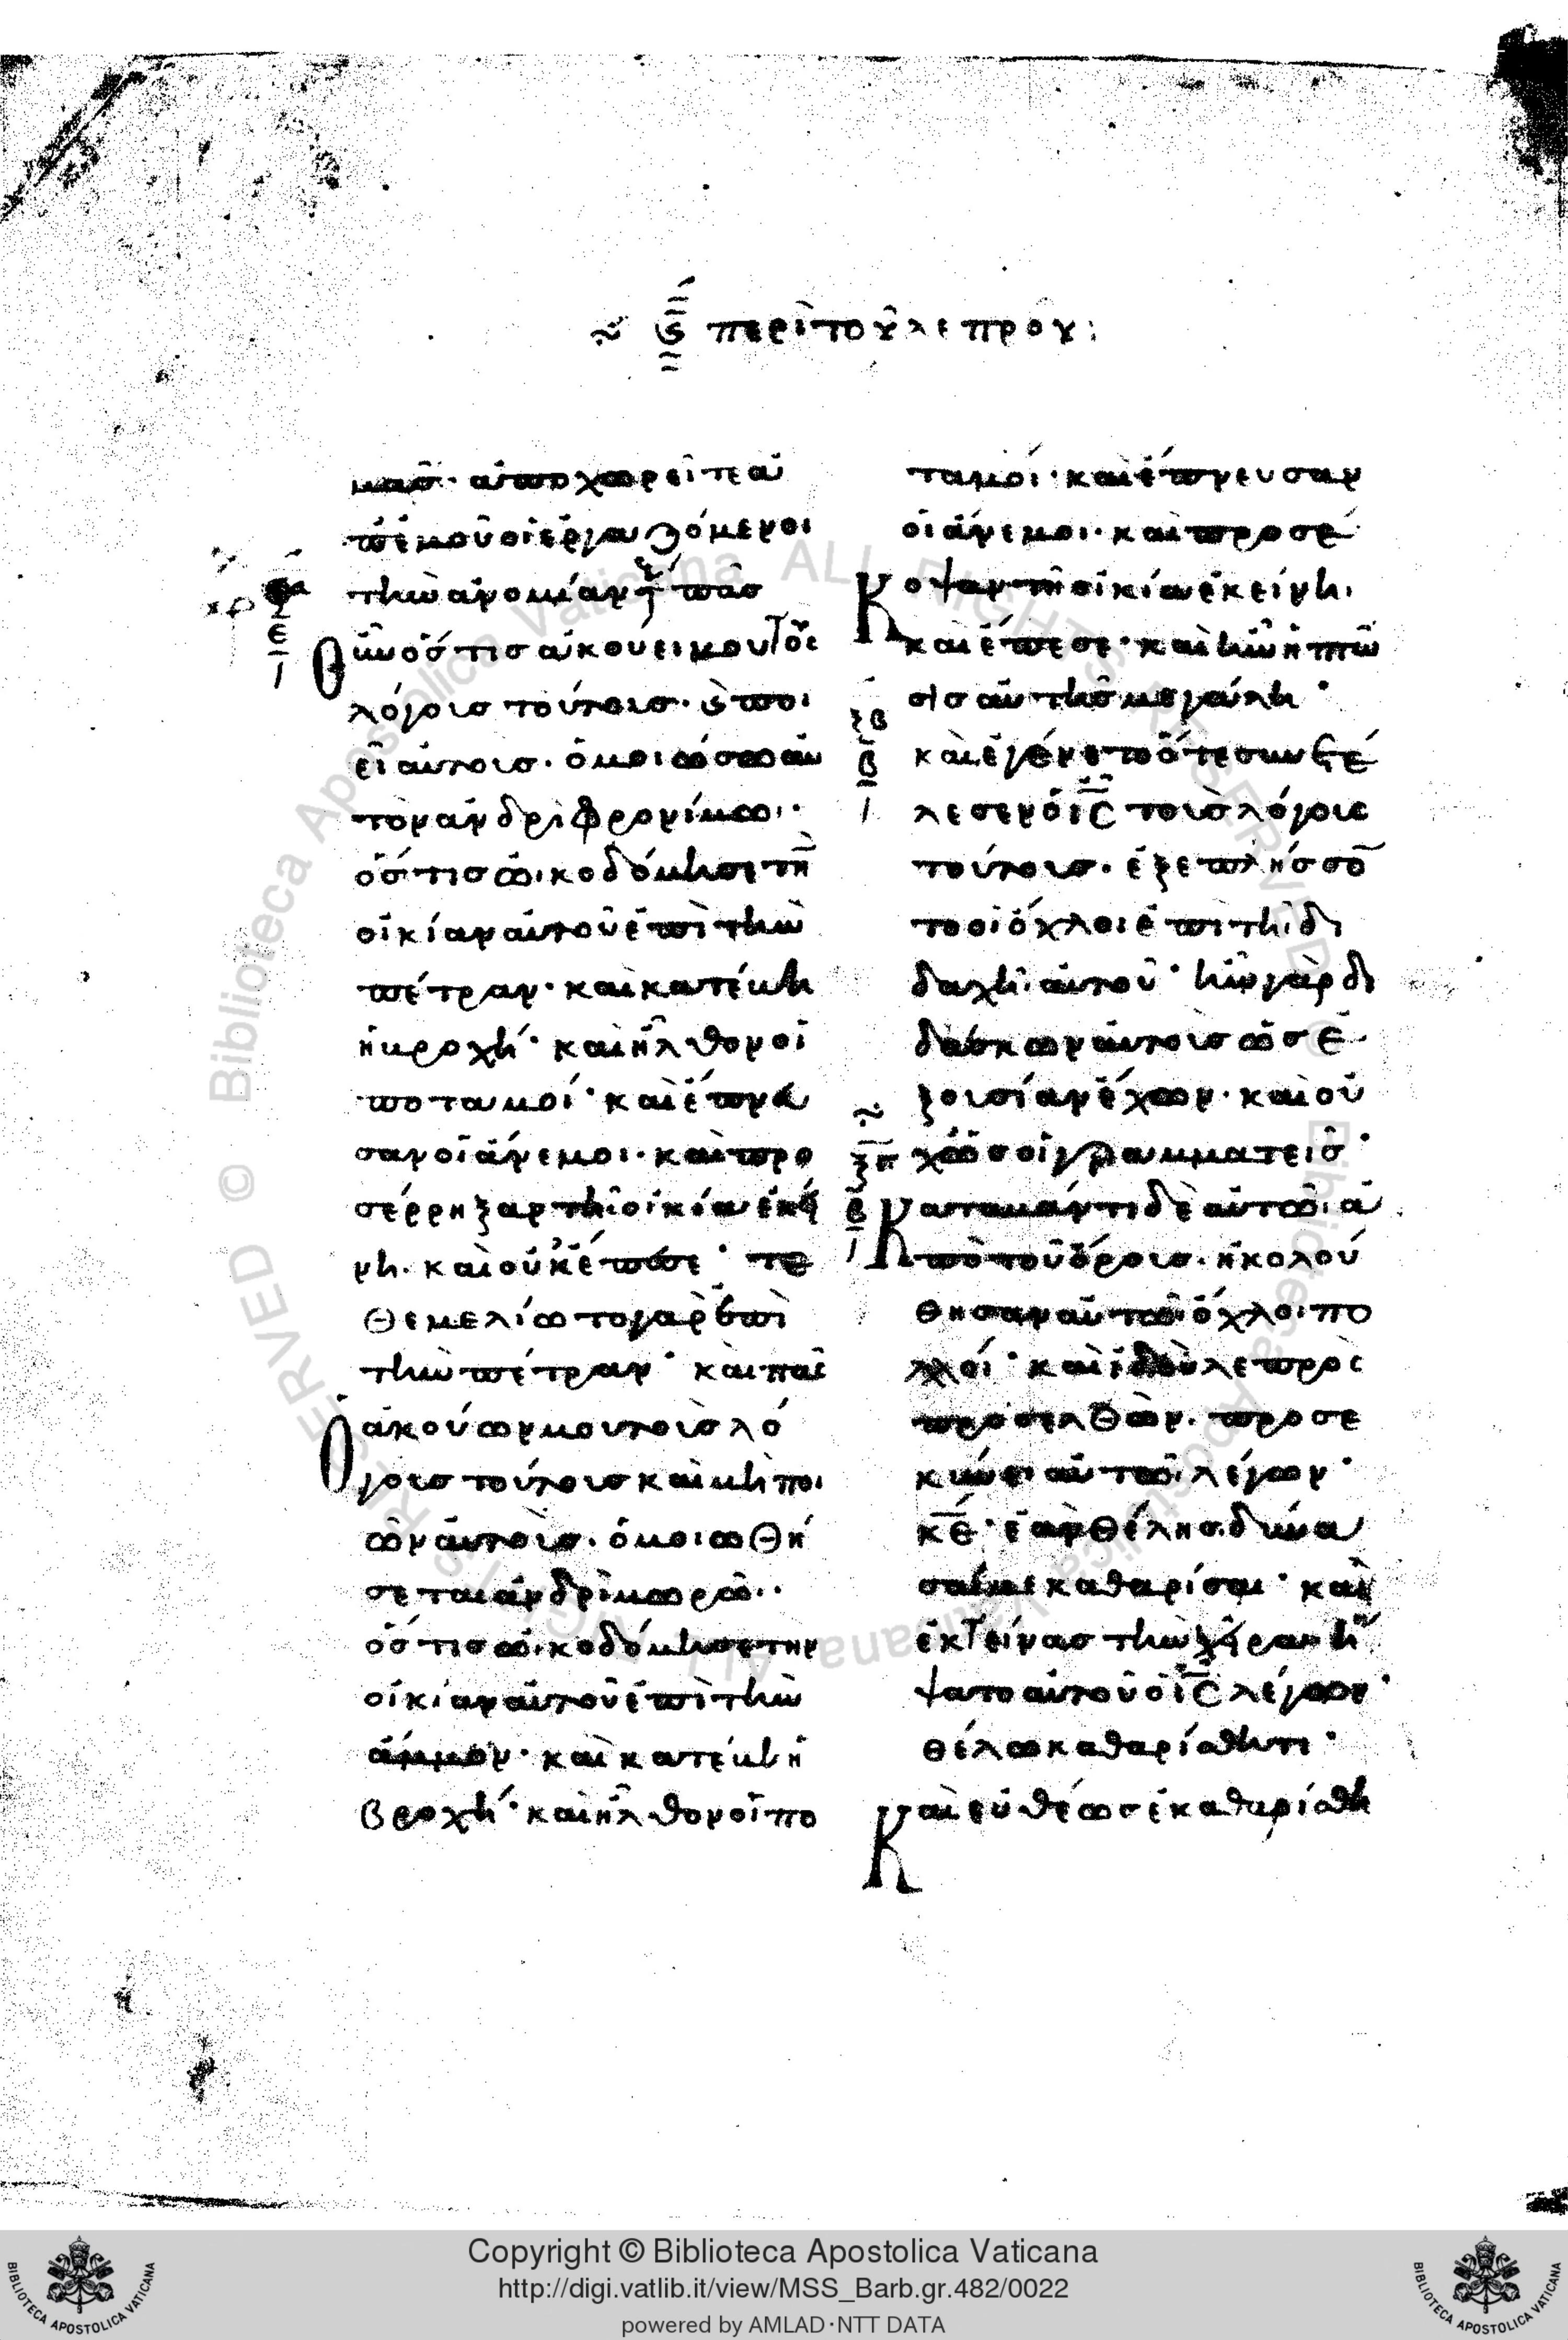 ϛ περὶ τοῦ λεπροῦ:
μᾶσ· ἀποχωρεῖτε ἀ
π ἐμοῦ οἱ ἐργαζόμενοι
τὴν ἀνομίαν πᾶσ
οὖν ὅστισ ἀκούει μου τοὺσ
λόγουσ τούτουσ· καὶ ποι
εῖ αὐτοὺσ· ὁμοιώσω αὐ
τὸν ἀνδρὶ φρονίμωι·
ὅστισ ὠικοδόμησε τὴν
οἰκίαν αὐτοῦ ἐπὶ τὴν
πέτραν· καὶ κατέβη
ἡ βροχή· καὶ ἦλθον οἱ
ποταμοί· καὶ ἔπνευ
σαν οἱ ἄνεμοι· καὶ προ
σέρρηξαν τῆι οἰκίαι ἐκεί
νηι· καὶ οὐκ ἔπεσε· τε
θεμελίωτο γὰρ ἐπὶ
τὴν πέτραν· καὶ πᾶσ
ὁ ἀκούων μου τοὺσ λό
γουσ τούτουσ καὶ μὴ ποι
ῶν αὐτοὺσ· ὁμοιωθή
σεται ἀνδρὶ μωρῶι·
ὅστισ ὠικοδόμησε τὴν
οἰκίαν αὐτοῦ ἐπὶ τὴν
ἄμμον· καὶ κατέβη ἡ
βροχή· καὶ ἦλθον οἱ πο
ταμοί· καὶ ἔπνευσαν
οἱ ἄνεμοι· καὶ προσέ
κοψαν τῆι οἰκίαι ἐκείνηι·
καὶ ἔπεσε· καὶ ἦν ἡ πτῶ
σισ αὐτῆσ μεγάλη·
ξβ
β
καὶ ἐγένετο ὅτε συνετέ
λεσεν ὁ ισ τοὺσ λόγουσ
τούτουσ· ἐξεπλήσσον
το οἱ ὄχλοι ἐπὶ τῆι δι
δαχῆι αὐτοῦ· ἦν γὰρ δι
δάσκων αὐτοὺσ ὡσ ἐ
ξουσίαν ἔχων· καὶ οὐ
χ ὡσ οἱ γραμματεῖσ·
Καταβάντι δὲ αὐτῶι ἀ
πὸ τοῦ ὄρουσ· ἠκολού
θησαν αὐτῶι ὄχλοι πο
λλοί· καὶ ἰδοὺ λεπρὸσ
προσελθὼν· προσε
κύνει αὐτῶι λέγων·
κε· ἐὰν θέλησ δύνα
σαί με καθαρίσαι· καὶ
ἐκτείνασ τὴν χεῖραν ἥ
ψατο αὐτοῦ ὁ ισ λέγων·
θέλω καθαρίσθητι·
Καὶ εὐθέωσ ἐκαθαρίσθη
Copyright © Biblioteca Apostolica Vaticana
http://digi.vatlib.it/view/MSS_Barb.gr.482/0022
powered by AMLAD·NTT DATA